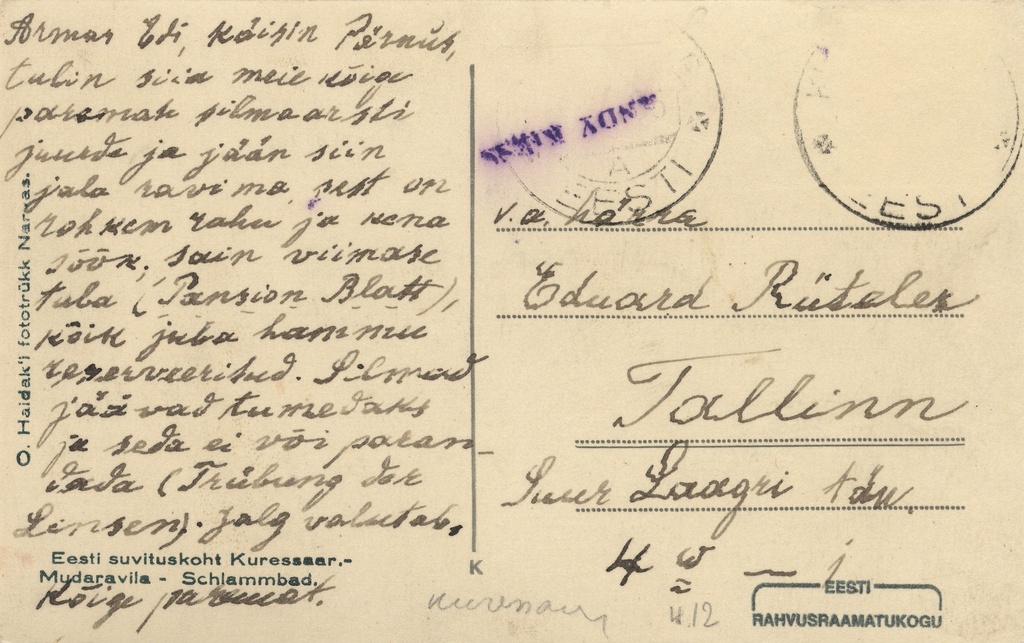 Armas Edi, käisin Pärnus,
tulin siia meie kõige
paremah silmaarsti
juurde ja jään siin
jala ravima, sest on
rohkem rahu ja kena
söök, sain viimase
tuba (Pansion Blatt),
kõik juba hammu
reserveeritud. Silmad
jäävad tumedaks
ja seda ei või paran
dada (Trübung der
Linsen). Jalg valutab,
Kõige paremat.
O. Haidak'i fototrükk Narvas.
Eesti suvituskoht Kuressaar.-
Mudaravila - Schlammbad.
K
EESTI
EESTI
v.a. härra
Eduard Rütaler
Tallinn
Suur Laagri tän.
4
4.12
EESTI
RAHVUSRAAMATUKOGU